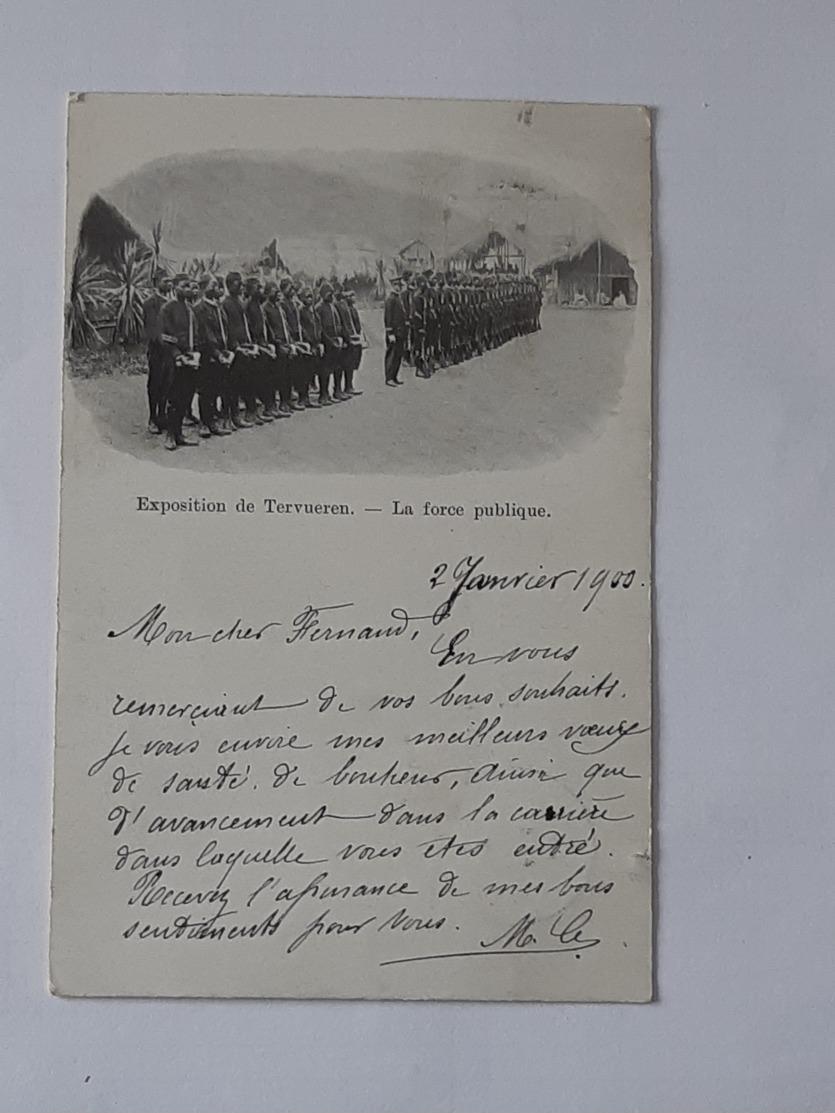 Exposition de Tervueren. — La force publique.
2 Janvier 1900.
Mon cher Fernand,
En vous
remerçiant de vos bons souhaits.
je vous envoie mes meilleurs vœux
de santé. de bonheur, ainsi que
d'avancement dans la carrière
dans laquelle vous êtes entré.
Recevez l'assurance de mes bons
sentiments pour vous.
M.